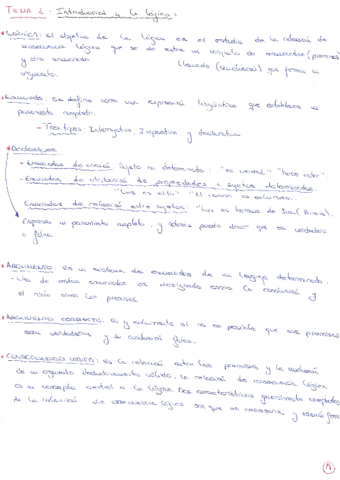 TEMA 1: Introducción a la lógica.
• LÓGICA: El objetivo de la lógica es el estudio de la relación de
consecuencia lógica que se da entre un conjunto de enunciados (premisas)
y otro enunciado llamado (conclusión) que forma un
argumento.
• Enunciado: Se define como una expresión lingüística que establece un
pensamiento completo.
- Tres tipos: Interrogativo, Imperativo y declarativo
• Declarativos
- Enunciados de acción: Sujeto no determinado: "es verdad" "hace calor"
- Enunciados de atribución de propiedades a sujetos determinados.
"Luis es alto"
Enunciados de relación entre sujetos: "Luis es hermano de
Expresa un pensamiento completo, y además puedo decir que es verdadero
o falso.
• ARGUMENTO: Es un sistema de enunciados de un lenguaje determinado.
- Uno de estos enunciados es designado como la conclusión y
el resto como las premisas.
• ARGUMENTO CORRECTO: Si y solamente si no es posible que sus premisas
sean verdaderas y la conclusión falsa.
• CONSECUENCIA LÓGICA: Es la relación entre las premisas y la conclusión
de un argumento deductivamente válido. La relación de consecuencia lógica
es un concepto central a la lógica. Dos características generalmente aceptadas
de la relación de consecuencia lógica son que es necesaria y